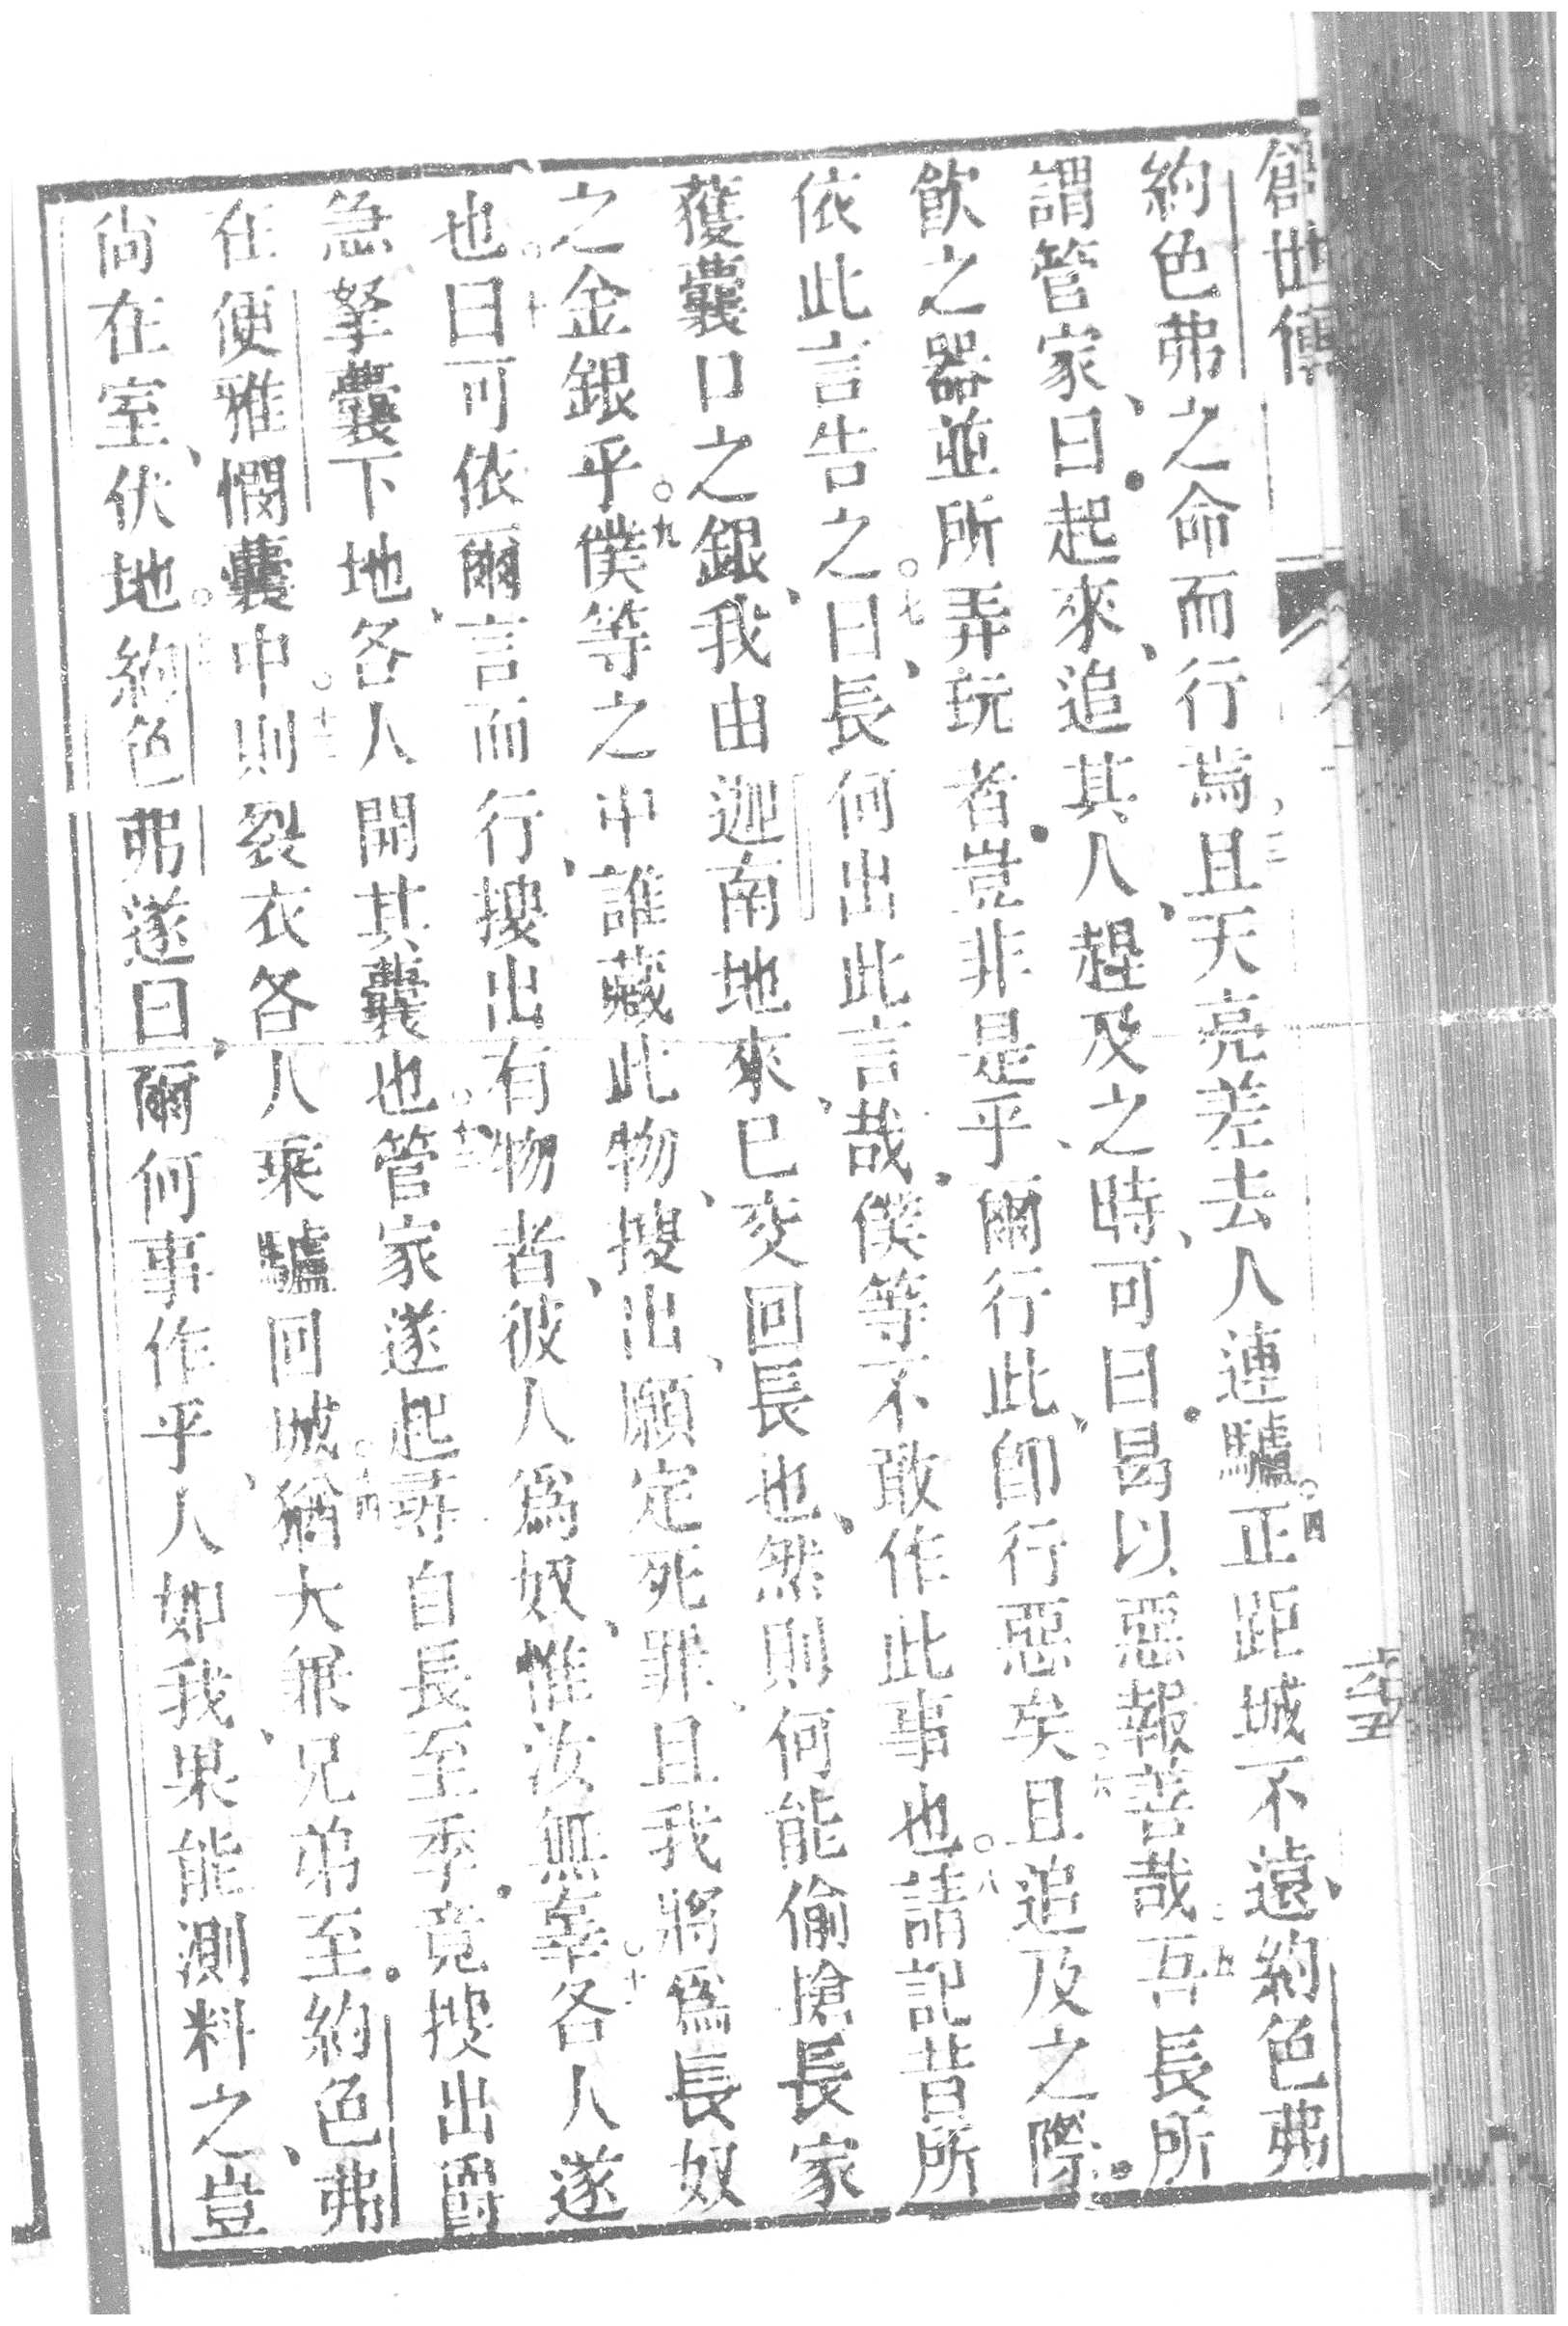 創世傳
約色弗之命而行焉。三且天亮差去人連驢。四正距城不遠、約色弗
謂管家、曰起來、追其人、趕及之時、可曰、曷以惡報善哉。五吾長所
飲之器並所弄玩者、豈非是乎、爾行此、卽行惡矣。六且追及之際、
依此言告之。七曰、長何出此言哉、僕等不敢作此事也。八請記昔所
獲囊口之銀、我由迦南地來、已交回長也、然則何能偷搶長家
之金銀乎。九僕等之中、誰藏此物、搜出、願定死罪、且我將爲長奴
也。十曰可依爾言而行、搜出有物者、彼人爲奴、惟汝無辜。十一各人遂
急拏囊下地、各人開其囊也。十二管家遂起尋、自長至季、竟搜出爵
在便雅憫囊中。十三則裂衣、各人乘驢回城。十四猶大暨兄弟至約色弗
尚在室、伏地。十五約色弗遂曰、爾何事作乎、人如我、果能測料之、豈